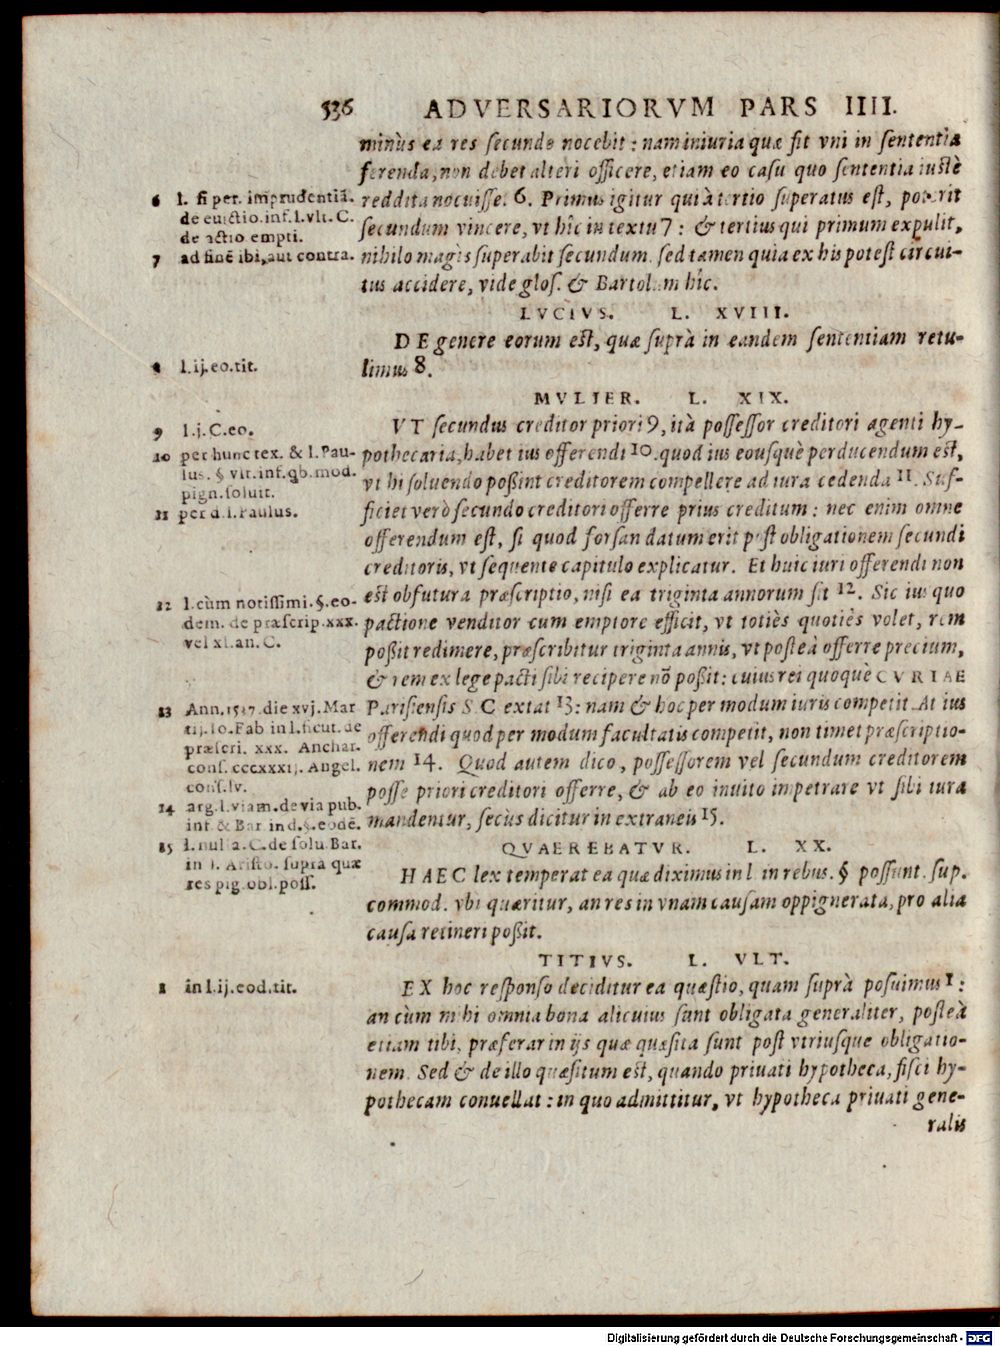 536 ADVERSARIORVM PARS IIII.
minùs ea res secundo nocebit: nam iniuria quæ fit vni in sententia
ferenda, non debet alteri officere, etiam eo casu quo sententia iustè
reddita nocuisse. 6. Primus igitur qui à tertio superatus est, poterit
secundum vincere, vt hîc in textu 7: & tertius qui primum expulit,
nihilo magis superabit secundum. sed tamen quia ex his potest circui-
tus accidere, vide glos. & Bartolum hîc.
LVCIVS. L. XVIII.
DE genere eorum est, quæ suprà in eandem sententiam retu-
limus 8.
MVLIER. L. XIX.
VT secundus creditor priori 9, ità possessor creditori agenti hy-
pothecaria, habet ius offerendi 10. quod ius eousquè perducendum est,
vt hi soluendo poßint creditorem compellere ad iura cedenda 11. Suf-
ficiet verò secundo creditori offerre prius creditum: nec enim omne
offerendum est, si quod forsan datum erit post obligationem secundi
creditoris, vt sequente capitulo explicatur. Et huic iuri offerendi non
est obfutura præscriptio, nisi ea triginta annorum sit 12. Sic ius quo
pactione venditor cum emptore efficit, vt totiès quotiès volet, rem
poßit redimere, præscribitur triginta annis, vt posteà offerre precium,
& rem ex lege pacti sibi recipere nõ poßit: cuius rei quoquè CVRIAE
Parisiensis S C extat 13: nam & hoc per modum iuris competit. At ius
offerendi quod per modum facultatis competit, non timet præscriptio-
nem 14. Quod autem dico, possessorem vel secundum creditorem
posse priori creditori offerre, & ab eo inuito impetrare vt sibi iura
mandentur, secùs dicitur in extraneis 15.
QVAEREBATVR. L. XX.
HAEC lex temperat ea quæ diximus in l. in rebus. § possunt. sup.
commod. vbi quæritur, an res in vnam causam oppignerata, pro alia
causa retineri poßit.
TITIVS. L. VLT.
EX hoc responso deciditur ea quæstio, quam suprà posuimus 1:
an cùm mihi omnia bona alicuius sunt obligata generaliter, posteà
etiam tibi, præferar in ijs quæ quæsita sunt post vtriusque obligatio-
nem. Sed & de illo quæsitum est, quando priuati hypotheca, fisci hy-
pothecam conuellat: in quo admittitur, vt hypotheca priuati gene-
ralis
6 l. si per. imprudentiã.
de euictio. inf. l. vlt. C.
de actio empti.
7 ad finē ibi, aut contra.
8 l. ij. eo. tit.
9 l. j. C. eo.
10 per hunc tex. & l. Pau-
lus. § vlt. inf. qb. mod.
pign. soluit.
11 per d. l. Paulus.
12 l. cùm notissimi. §. eo-
dem. de præscrip. xxx.
vel xl. an. C.
13 Ann. 1527. die xvj. Mar
tij. Io. Fab in l. sicut. de
præscri. xxx. Anchar.
cons. cccxxxij. Angel.
cons. lv.
14 arg. l. viam. de via pub.
inf. & Bar in d. §. eodē.
15 l. nulla. C. de solu. Bar.
in l. Aristo. supra quæ
res pig. obl. poss.
1 in l. ij. eod. tit.
Digitalisierung gefördert durch die Deutsche Forschungsgemeinschaft - DFG